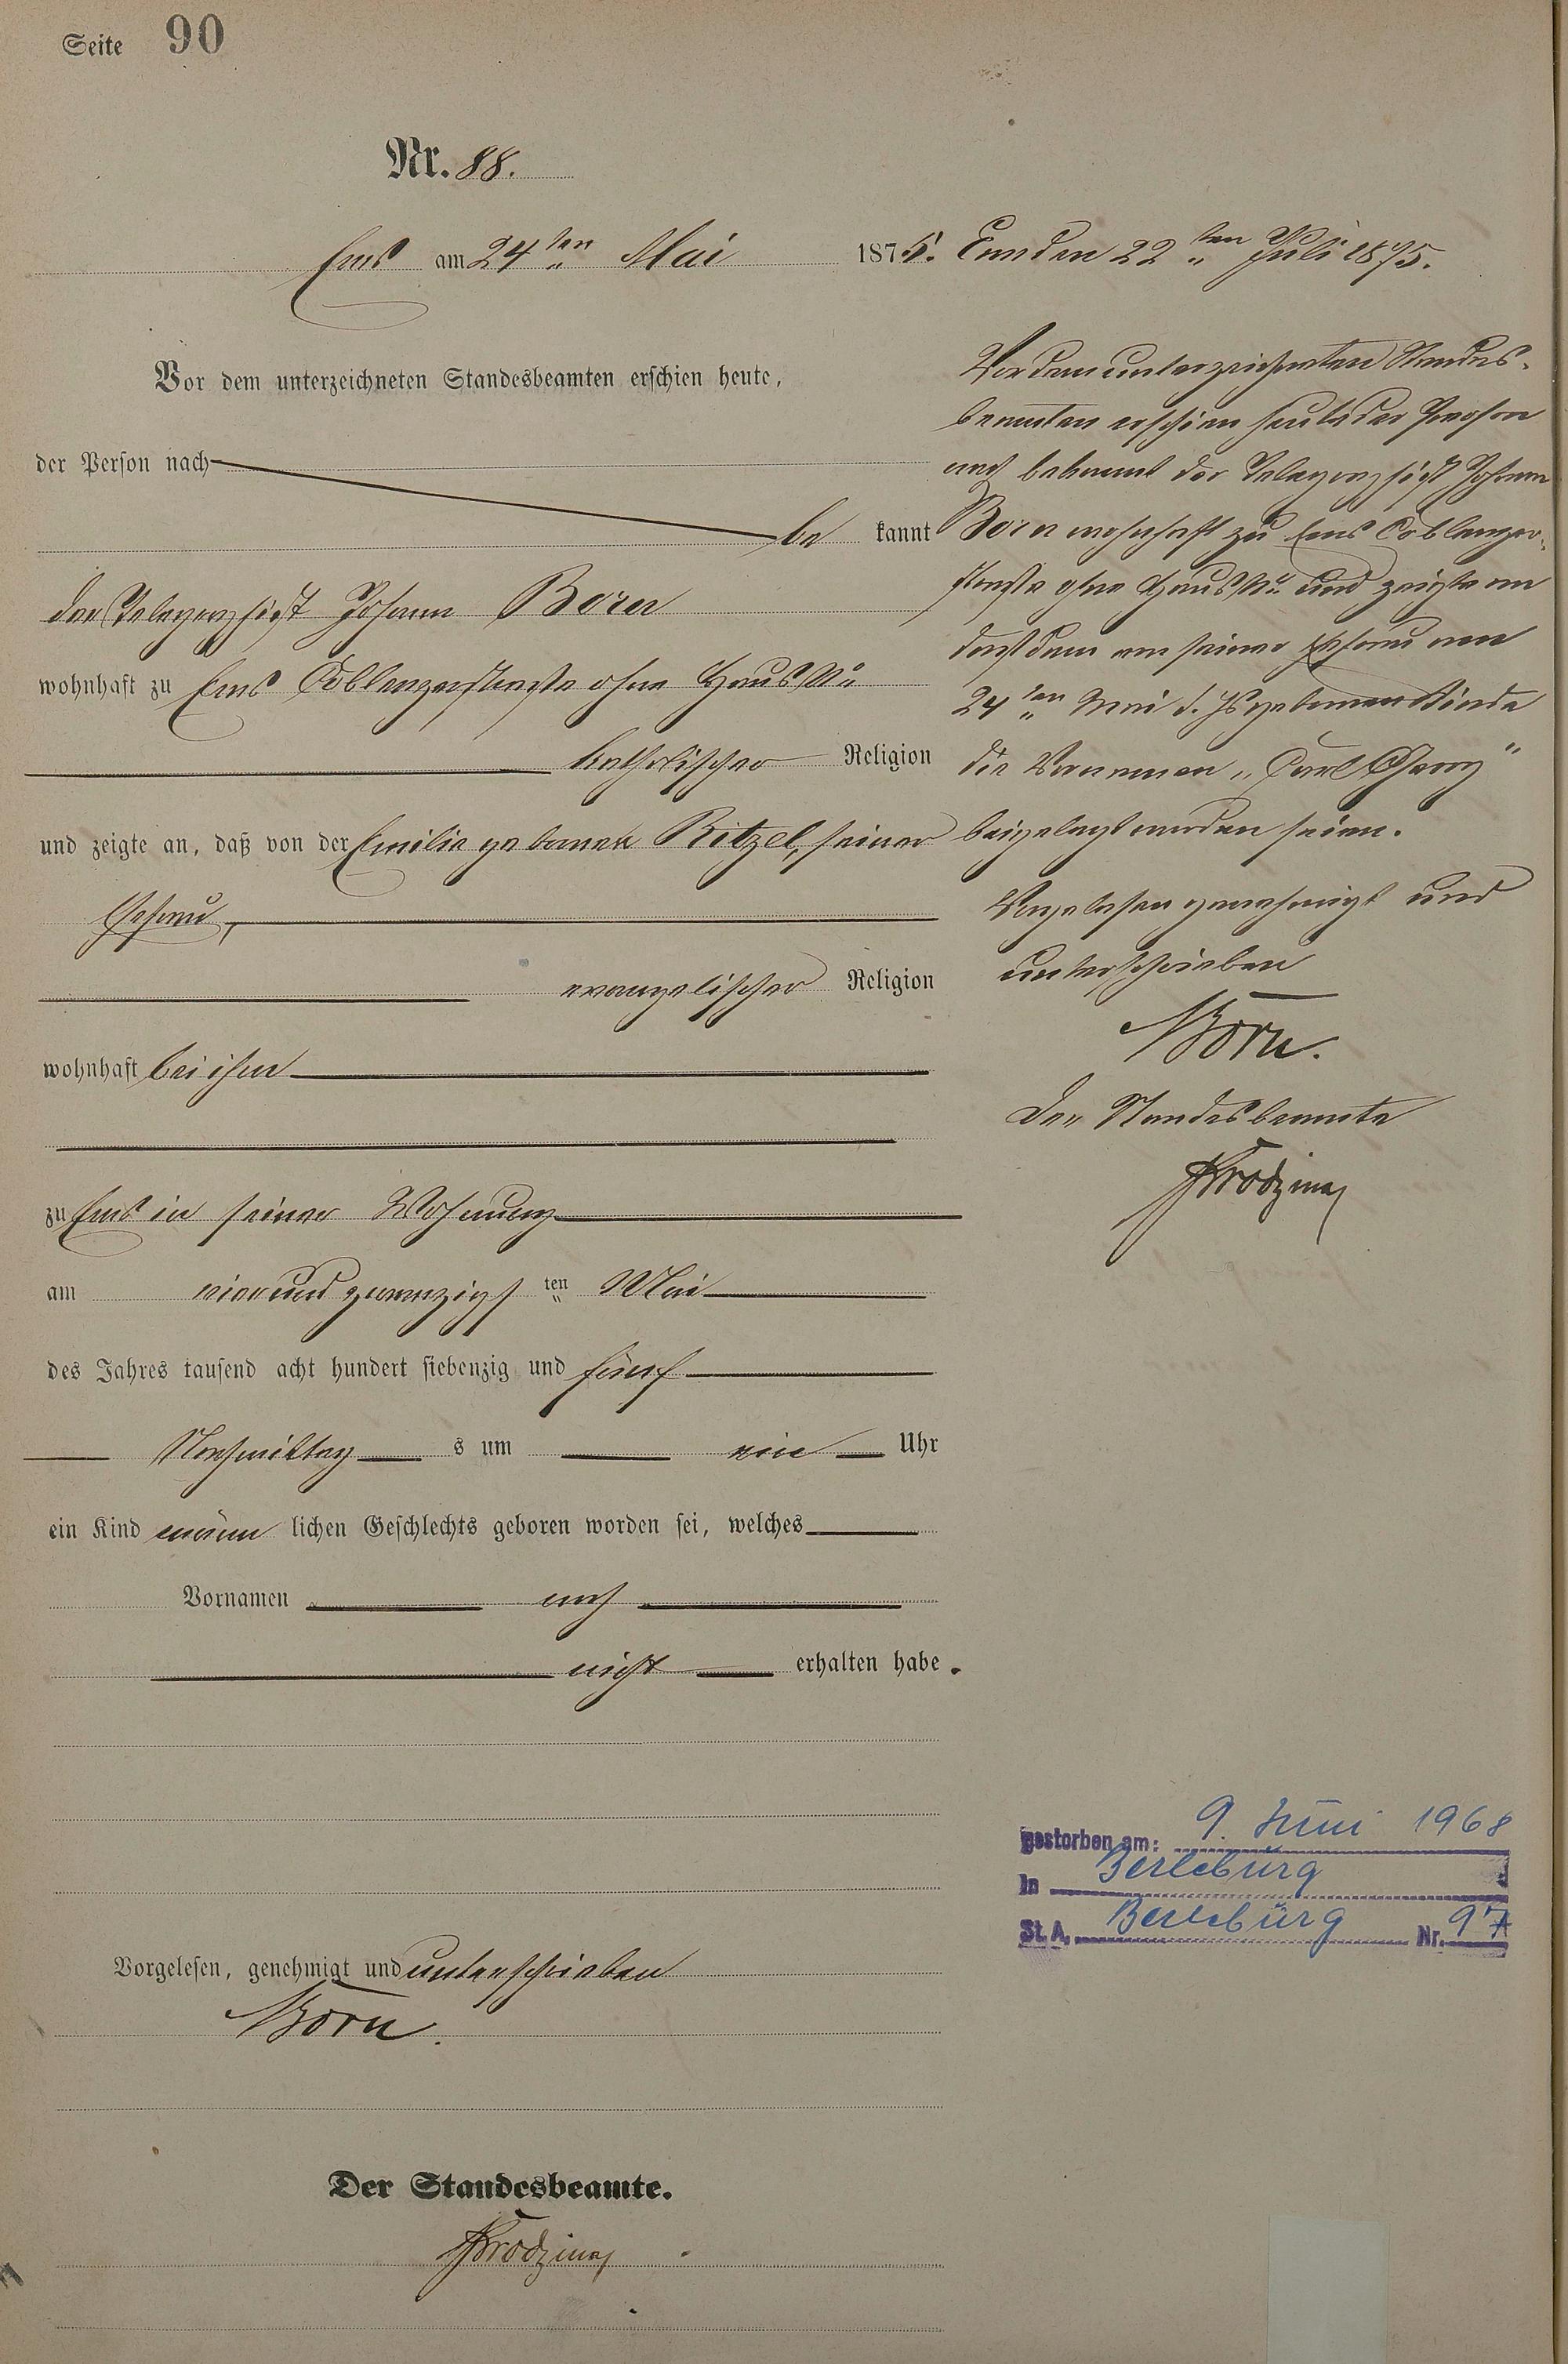 Seite 90
Nr. 88.
Ems am 24ten Mai 1875.
Vor dem unterzeichneten Standesbeamten erschien heute,
der Person nach
be kannt
der Telegraphist Johann Born
wohnhaft zu Ems Coblenzerstraße ohne Haus No
katholischer Religion
und zeigte an, daß von der Emilie geborene Ritzel, seiner
Ehefrau,
evangelischer Religion
wohnhaft bei ihm
zu Ems in seiner Wohnung
am vierundzwanzigsten Mai
des Jahres tausend acht hundert siebenzig und fünf
Nachmittag s um ein Uhr
ein Kind männ lichen Geschlechts geboren worden sei, welches
Vornamen noch
nicht erhalten habe.
Vorgelesen, genehmigt und unterschrieben
Born.
Der Standesbeamte.
Ems den 22ten Juli 1875.
Vor dem unterzeichneten Standes-
beamten erschien heute der Person
nach bekannt der Telegraphist Johann
Born wohnhaft zu Ems Coblenzer-
straße ohne Haus No und zeigte an
daß dem von seiner Ehefrau am
24ten Mai d. Js geborenen Kinde
die Vornamen „Carl Georg"
beigelegt worden seien.
Vorgelesen genehmigt und
unterschrieben
Born.
Der Standesbeamte
gestorben am: 9. Juni 1968
In Berleburg
St. A. Berleburg Nr. 97